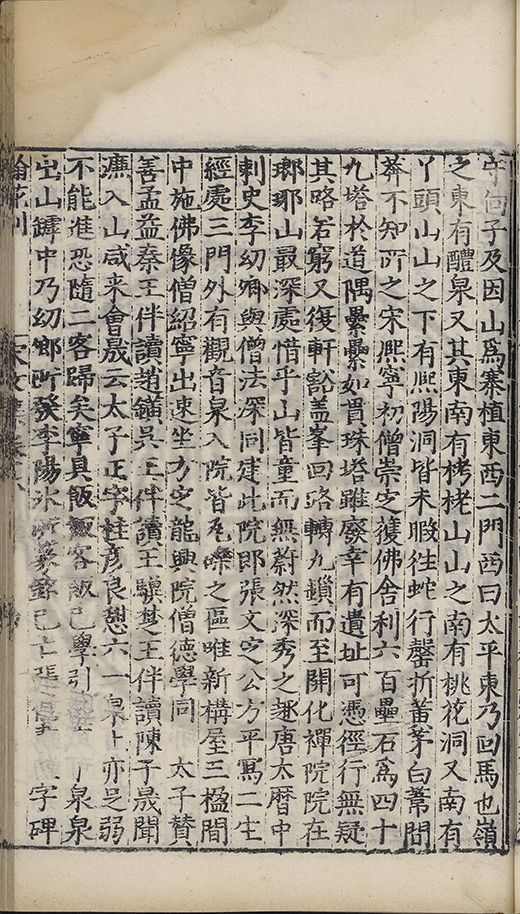 守向子及因山爲寨植東西二門西曰太平東乃回馬也嶺
之東有醴泉又其東南有栲栳山山之南有桃花洞又南有
丫頭山山之下有熈陽洞皆未暇徃蛇行罄折黃茅白葦間
莽不知所之宋熈寧初僧崇定獲佛舎利六百壘石爲四十
九塔於道隅纍纍如貫珠塔雖廢幸有遺址可憑徑行無疑
其略若窮又復軒豁盖峯回路轉九鎖而至開化禪院院在
瑯琊山最深處惜乎山皆童而無蔚然深秀之趣唐太曆中
刺史李幼卿與僧法深同建此院即張文定公方平寫二生
經處三門外有觀音泉入院皆瓦礫之區唯新構屋三楹間
中施佛像僧紹寧出速坐方定龍興院僧德學同 太子賛
善孟益秦王伴讀趙鐄吳王伴讀王驥楚王伴讀陳子晟聞
濂入山咸来會晟云太子正字桂彦良憩六一泉上亦足弱
不能進恐隨二客歸矣寧具飯飯客飯已學引 泉泉
出山罅中乃幼卿所發李陽冰所篆銘已亡張 字碑